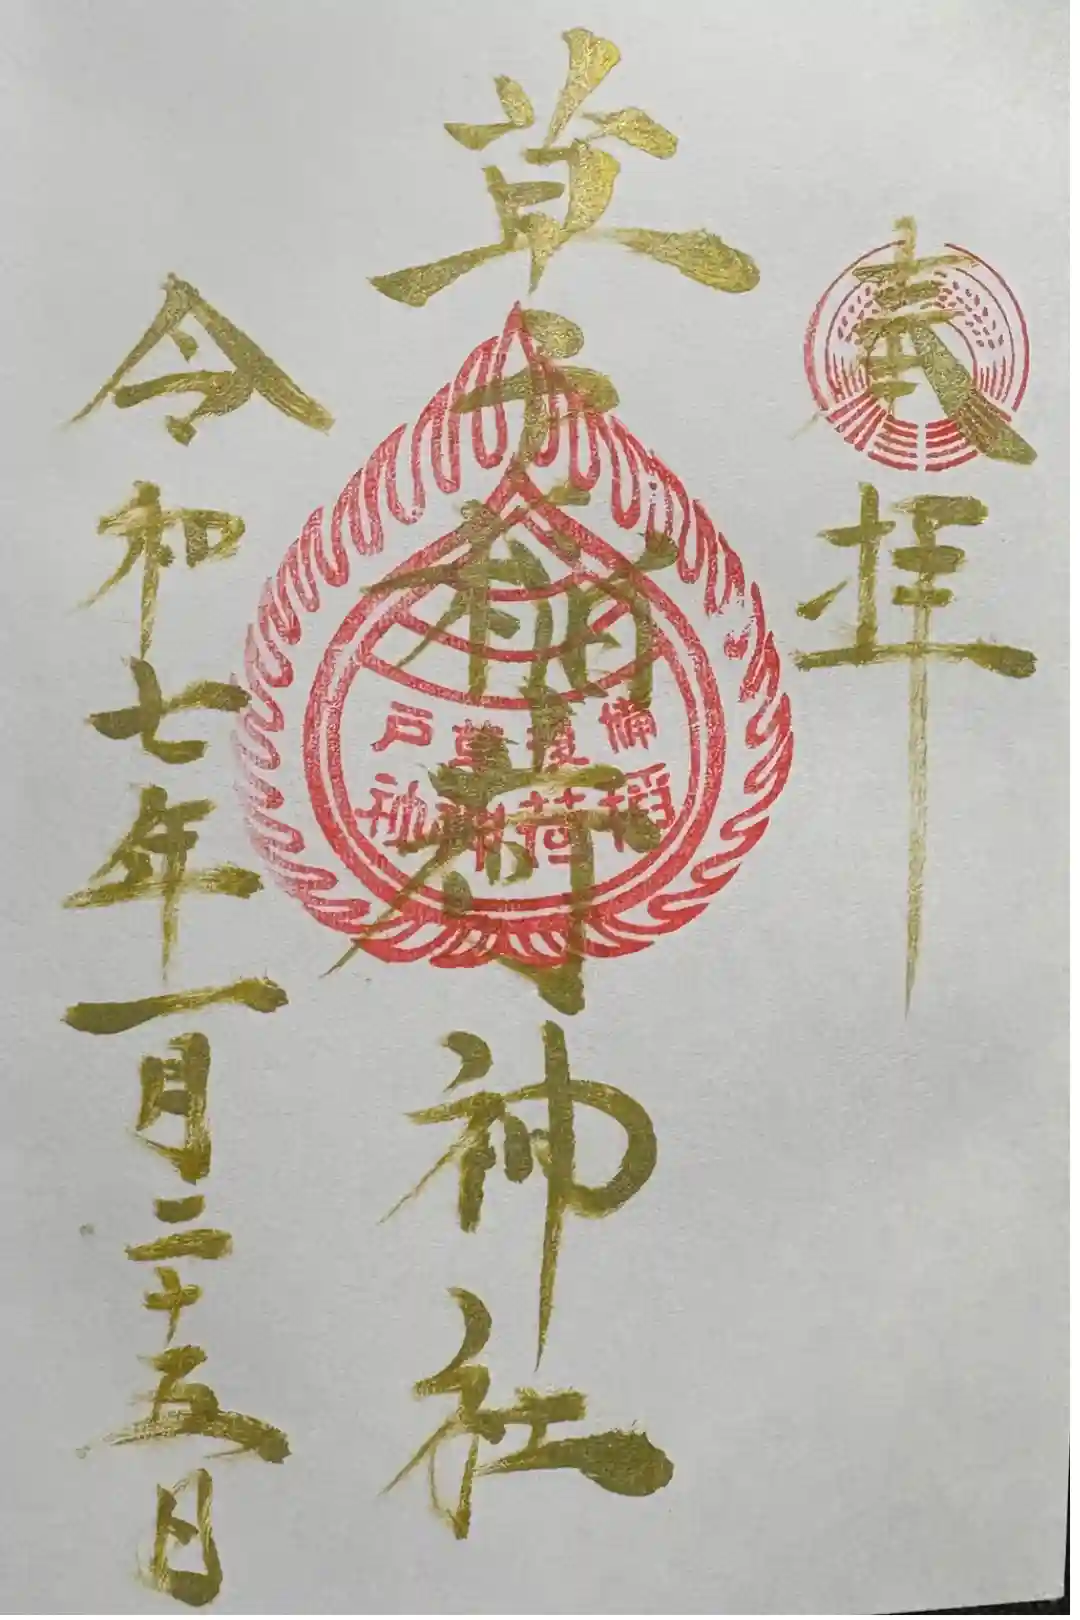 奉拝
草戸稲荷神社
備後草戸
稲荷神社
令和七年一月二十五日